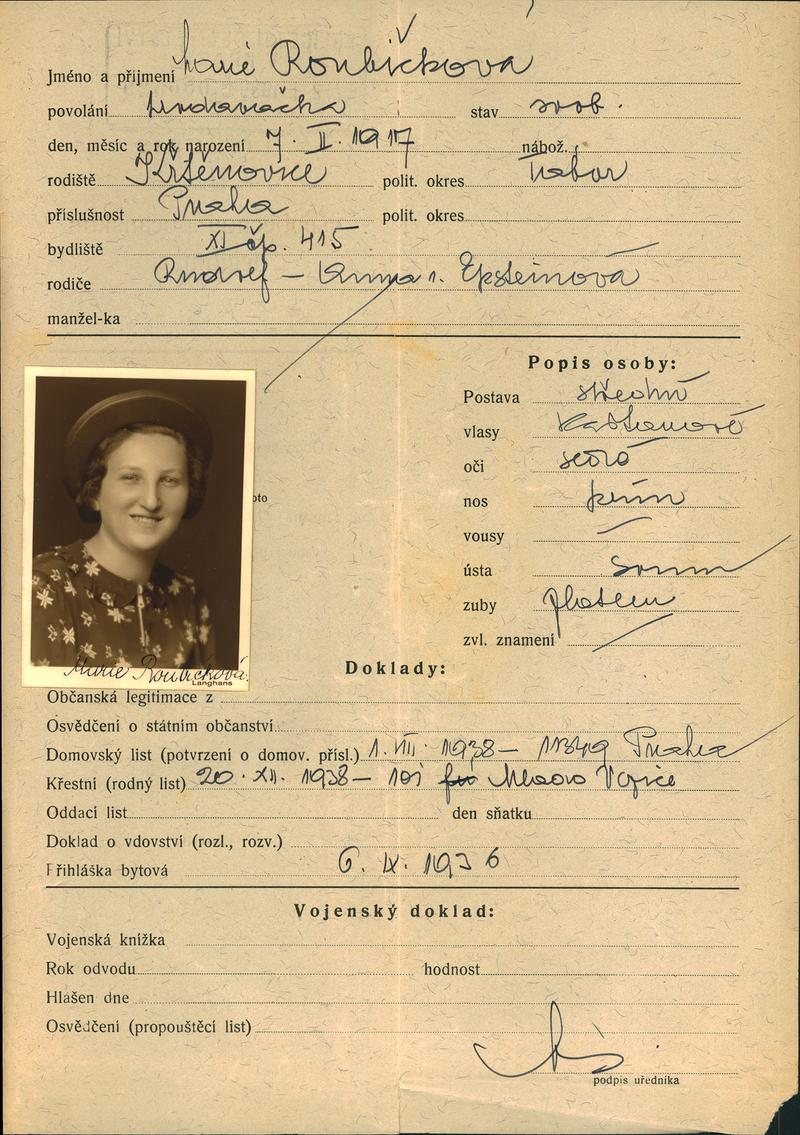 Jméno a příjmení Marie Roubíčková
povolání stav svob.
den, měsíc a rok narození 7. II. 1917 nábož.
rodiště Křišemovice polit. okres Tábor
příslušnost Praha polit. okres
bydliště XI čp. 415
rodiče Rudolf – Anna r. Epsteinová
manžel-ka
Popis osoby:
Postava střední
vlasy kaštanové
oči šedé
oto
nos přím
vousy —
ústa souměr
zuby
zvl. znamení —
Marie Roubíčková
Langhans
Doklady:
Občanská legitimace z
Osvědčení o státním občanství
Domovský list (potvrzení o domov. přísl.) 1. VII. 1938 – 11349 Praha
Křestní (rodný list) 20. XII. 1938 – 101 Mladá Vožice
Oddací list den sňatku
Doklad o vdovství (rozl., rozv.)
Přihláška bytová 6. IX. 1936
Vojenský doklad:
Vojenská knížka
Rok odvodu hodnost
Hlášen dne
Osvědčení (propouštěcí list)
podpis uředníka